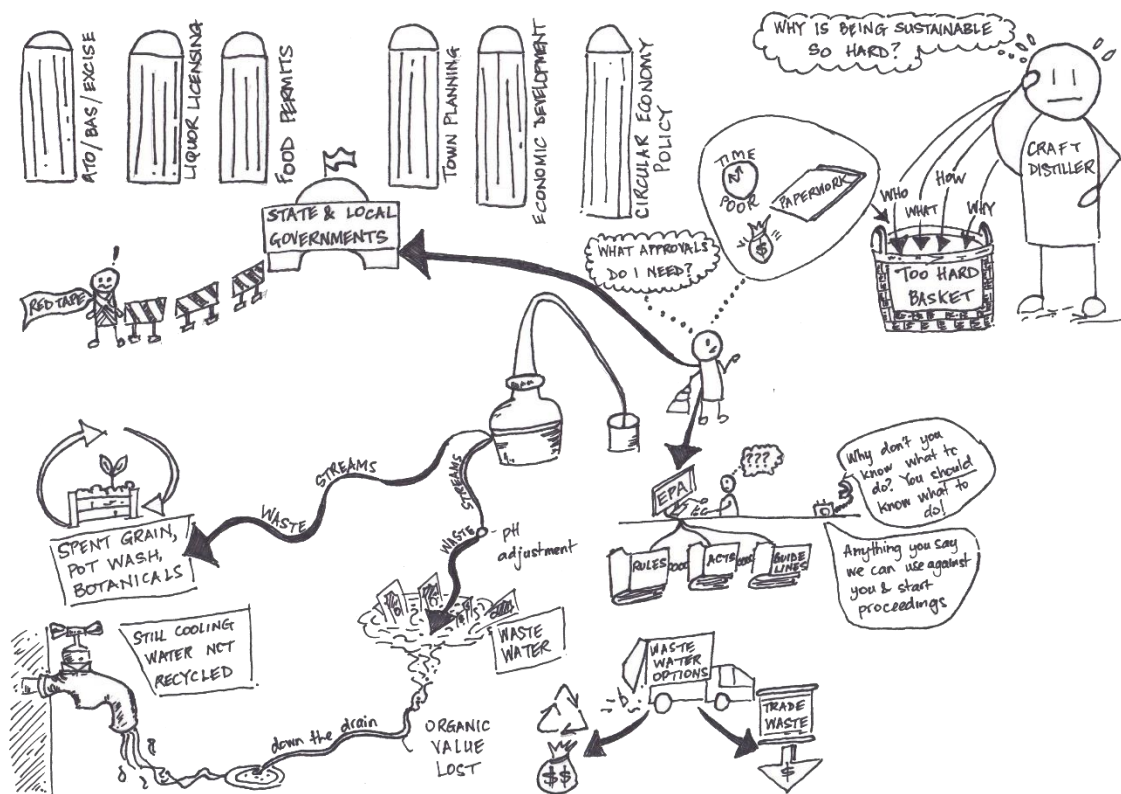 ATO/BAS/EXCISE
LIQUOR LICENSING
FOOD PERMITS
TOWN PLANNING
ECONOMIC DEVELOPMENT
CIRCULAR ECONOMY
POLICY
WHY IS BEING SUSTAINABLE
SO HARD?
CRAFT
DISTILLER
WHO
WHAT
HOW
WHY
TOO HARD
BASKET
TIME
POOR
PAPERWORK
$
WHAT APPROVALS
DO I NEED?
STATE & LOCAL
GOVERNMENTS
!
RED TAPE
WASTE STREAMS
WASTE STREAMS
pH
adjustment
SPENT GRAIN,
POT WASH,
BOTANICALS
STILL COOLING
WATER NOT
RECYCLED
WASTE
WATER
down the drain
ORGANIC
VALUE
LOST
???
EPA
RULES
ACTS
GUIDE
LINES
Why don't you
know what to
do? You should
know what to
do!
Anything you say
we can use against
you & start
proceedings
WASTE
WATER
OPTIONS
TRADE
WASTE
$$
$